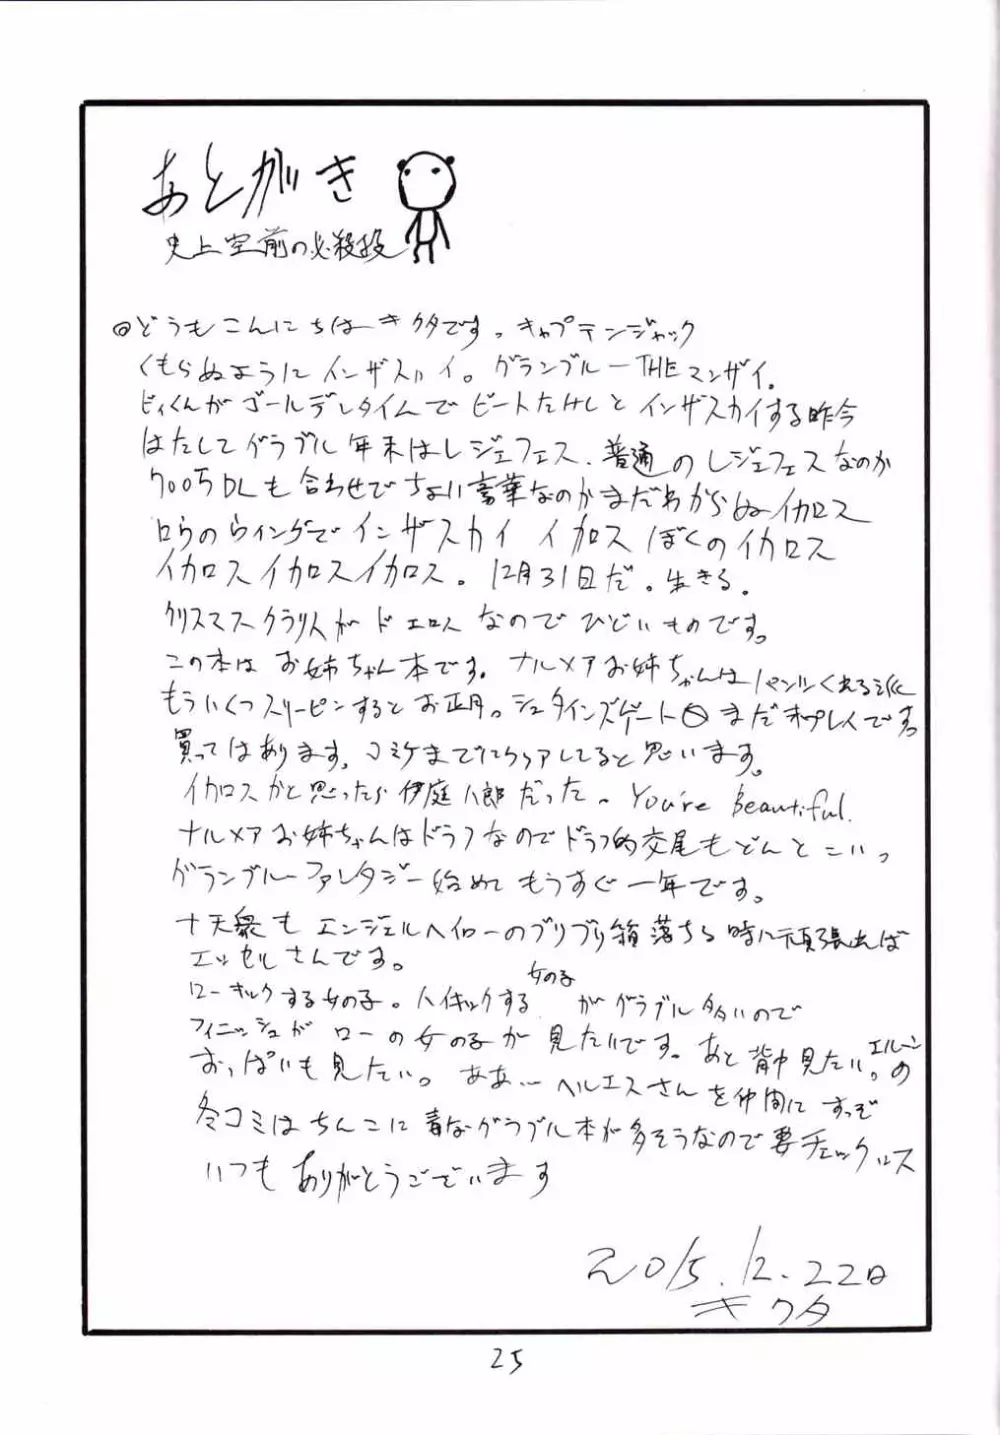 あとがき
史上空前の必殺技
どうもこんにちはキクタです。キャプテンジャック
くもらぬようにインザスカイ。グランブルーTHEマンザイ。
ビィくんがゴールデンタイムでビートたけしとインザスカイする昨今
はたしてグラブル年末はレジェフェス、普通のレジェフェスなのか
700万DLも合わせでちょい豪華なのかまだわからぬイカロス
ロウのウィングでインザスカイ イカロス ぼくのイカロス
イカロスイカロスイカロス。12月31日だ。生きる。
クリスマスクラリスがドエロスなのでひどいものです。
この本はお姉ちゃん本です。ナルメアお姉ちゃんはパンツくれる
もういくつスリーピンするとお正月。シュタインズゲート0まだ プレイです。
買ってはあります。コミケまでにクリアしてると思います。
イカロスかと思ったら伊庭八郎だった。You're Beautiful.
ナルメアお姉ちゃんはドラフなのでドラフ的交尾もどんとこいっ
グランブルーファンタジー始めてもうすぐ一年です。
十天衆もエンジェルヘイローのブリブリ箱落ちる時に頑張れば
エッセルさんです。
ローキックする女の子。ハイキックする女の子がグラブル多いので
フィニッシュがローの女の子が見たいです。あと背中見たい。エルーンの
おっぱいも見たい。ああ…ヘルエスさんを仲間にすっぞ
冬コミはちんこに毒なグラブル本が多そうなので要チェックっス
いつもありがとうございます
2015.12.22日
キクタ
25